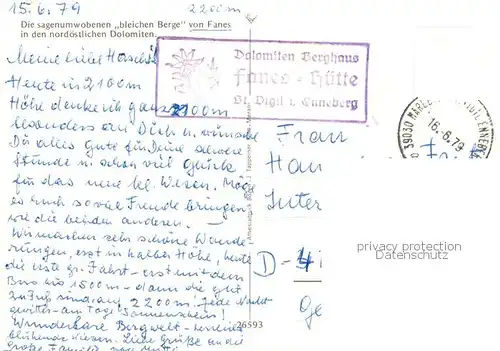 15.6.79
2200m
Die sagenumwobenen „bleichen Berge" von Fanes
in den nordöstlichen Dolomiten
Dolomiten Berghaus
Fanes - Hütte
St. Vigil i. Enneberg
Meine liebe
Heute in 2100m
Höhe denke ich ganz 2100m
besonders an Dich u. wünsche
Dir alles gute für Deine schwere
Stunde u. schon viel Glück
für das neue kl. Wesen. Möge
es Euch so viel Freude bringen,
wie die beiden anderen. -
Wir machen sehr schöne Wande-
rungen, erst in halber Höhe, heute
die erste gr. Fahrt - erst mit dem
Bus bis 1500m - dann die gut
zu Fuß hinauf 2200m! Jede Nacht
gewitter - am Tage Sonnenschein!
Wunderbare Bergwelt -
blühende Wiesen. Liebe Grüße an die
Große Familie
39030
16.6.79
Frau
Han
Unter
D - 4
Ge
26593
privacy protection
Datenschutz